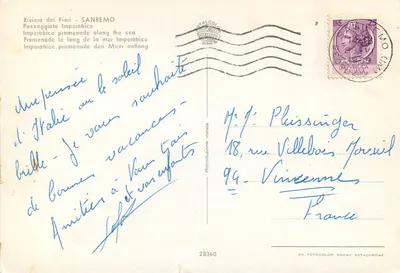 Riviera dei Fiori - SANREMO
Passeggiata Imperatrice
Imperatrice promenade along the sea
Promenade le long de la mer Imperatrice
Imperatrice promenade den Meer entlang
Une pensée
d'Italie où le soleil
brille - Je vous souhaite
de bonnes vacances -
Amitiés à Vous trois
et vos enfants
Mr Mr Pleissinger
18, rue Villebois Mareuil
94 - Vincennes
France
28360